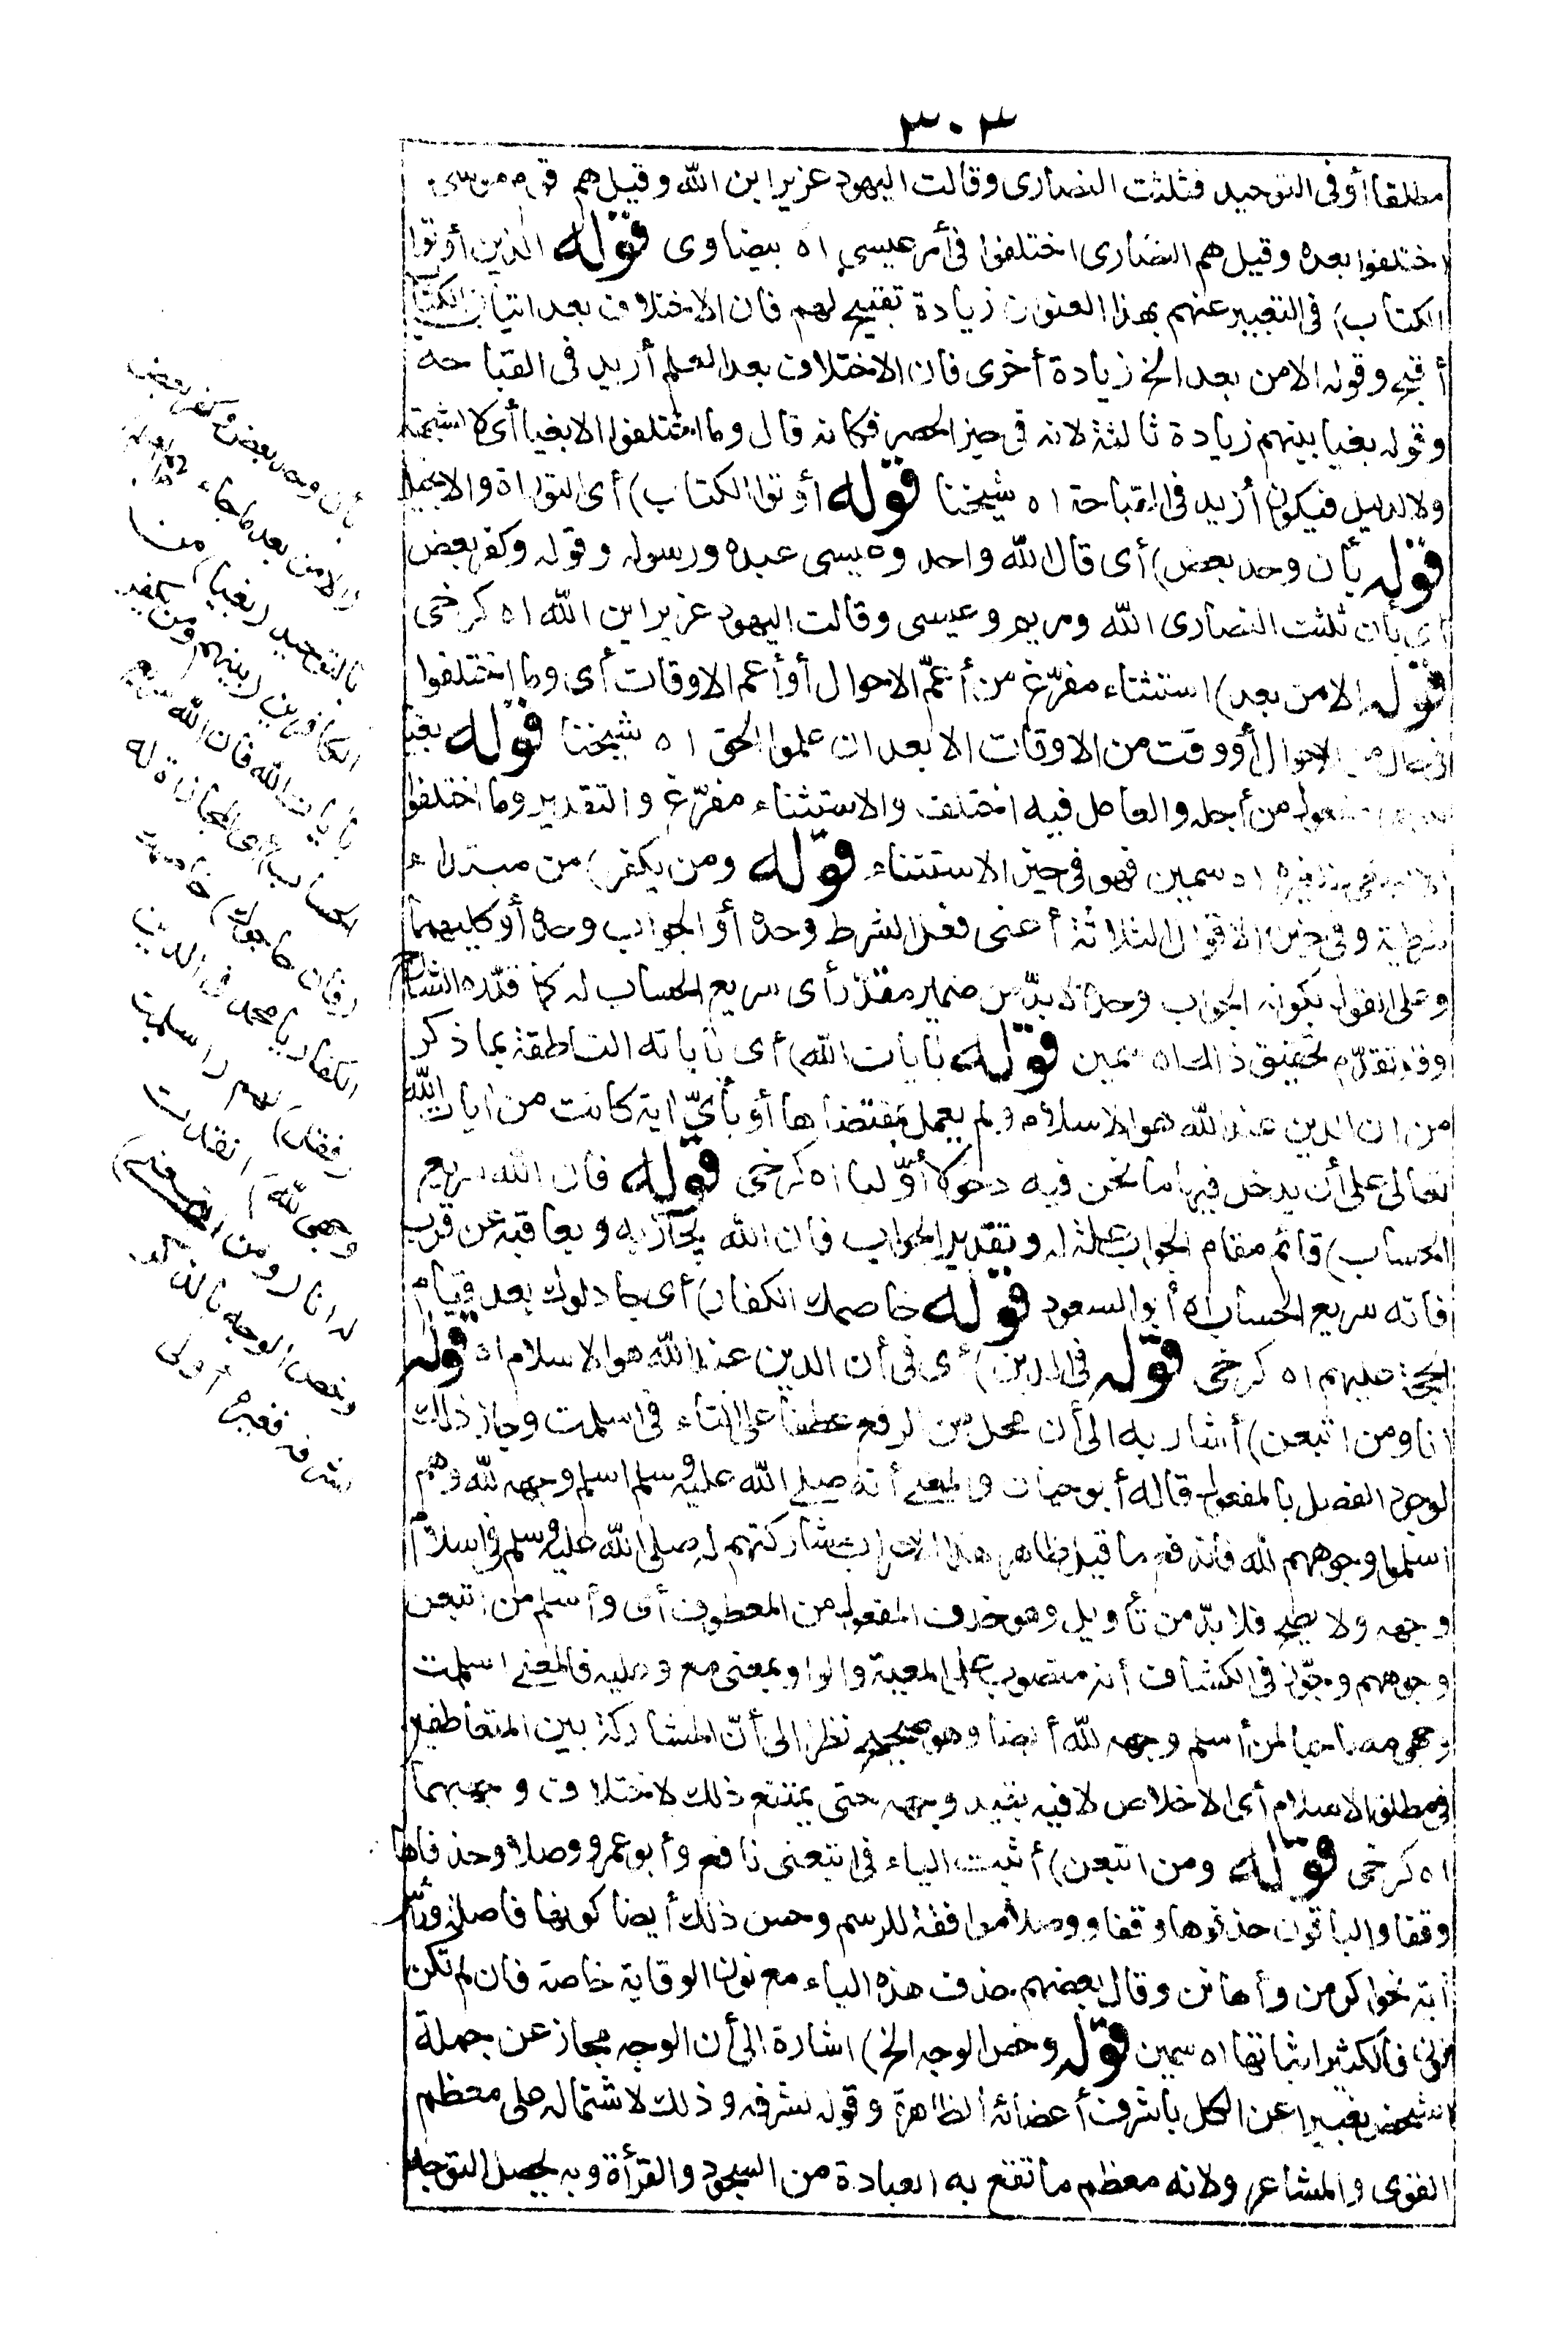 ٣٠٣
مطلقا أو في التوحيد فثلثت النصارى وقالت اليهود عزير ابن الله وقيل هم قوم موسى
اختلفوا بعده وقيل هم النصارى اختلفوا في أمر عيسى اه بيضاوى قوله الذين أوتوا
الكتاب) في التعبير عنهم بهذا العنوان زيادة تقبيح لهم فان الاختلاف بعد اتيان الكتاب
أقبح وقوله الا من بعد الخ زيادة أخرى فان الاختلاف بعد العلم أزيد في القباحة
وقوله بغيا بينهم زيادة ثالثة لانه في حيز الحصر فكانه قال وما اختلفوا الا بغيا أى لا لشبهة
ولا لدليل فيكون أزيد في القباحة اه شيخنا قوله أوتوا الكتاب) أى التوراة والانجيل
قوله بأن وحد بعض) أى قال الله واحد وعيسى عبده ورسوله وقوله وكفر بعض
أى بأن ثلثت النصارى الله ومريم وعيسى وقالت اليهود عزير ابن الله اه كرخى
قوله الا من بعد) استثناء مفرّغ من أعمّ الاحوال أو أعم الاوقات أى وما اختلفوا
في حال من الاحوال أو وقت من الاوقات الا بعد ان علموا الحق اه شيخنا قوله بغيا
مفعول من أجله والعامل فيه اختلف والاستثناء مفرّغ والتقدير وما اختلفوا
الا للبغى لا لغيره اه سمين فهو في حيز الاستثناء قوله ومن يكفر) من مبتداء
شرطية وفي خبره الاقوال الثلاثة أعنى فعل الشرط وحده أو الجواب وحده أو كليهما
وعلى القول بكونه الجواب وحده لا بدّ من ضمير مقدّر أى سريع الحساب له كما قدّره الشارح
وقد تقدّم تحقيق ذلك اه سمين قوله بآيات الله) أى بآياته الناطقة بما ذكر
من ان الدين عند الله هو الاسلام ولم يعمل بمقتضاها أو بأيّ اية كانت من ايات الله
تعالى على أن يدخل فيها ما نحن فيه دخولا أوّليا اه كرخى قوله فان الله سريع
الحساب) قائم مقام الجواب علة له وتقدير الجواب فان الله يجازيه ويعاقبه عن قرب
فانه سريع الحساب اه أبو السعود قوله خاصمك الكفار) أى جادلوك بعد قيام
الحجة عليهم اه كرخى قوله في الدين) أى في أن الدين عند الله هو الاسلام اه قوله
انا ومن اتبعن) أشار به الى أن محل من الرفع عطفا على التاء في اسلمت وجاز ذلك
لوجود الفصل بالمفعول قاله أبو حيان والمعنى أنه صلى الله عليه وسلم اسلم وجهه لله وهم
اسلموا وجوههم لله فاندفع ما قيل ظاهر هذا الاعراب مشاركتهم له صلى الله عليه وسلم في اسلام
وجهه ولا يصح فلا بدّ من تأويل وهو حذف المفعول من المعطوف أى وأسلم من اتبعن
وجوههم وجوّز في الكشاف أنه منصوب على المعية والواو بمعنى مع وعليه فالمعنى اسلمت
وجهى مصاحبا لمن أسلم وجهه لله أيضا وهو صحيح نظرا الى أنّ المشاركة بين المتعاطفين
في مطلق الاسلام أى الاخلاص لا فيه بقيد وجهه حتى يمتنع ذلك لاختلاف وجههما
اه كرخى قوله ومن اتبعن) أثبت الياء في اتبعنى نافع وأبو عمرو وصلا وحذفاها
وقفا والباقون حذفوها وقفا ووصلا موافقة للرسم وحسن ذلك أيضا كونها فاصلة ورأس
آية نحو اكرمن وأهانن وقال بعضهم حذف هذه الياء مع نون الوقاية خاصة فان لم تكن
نون فالكثير اثباتها اه سمين قوله وخص الوجه الخ) اشارة الى أن الوجه مجاز عن جملة
الشخص تعبيرا عن الكل باشرف أعضائه الظاهرة وقوله لشرفه وذلك لاشتماله على معظم
القوى والمشاعر ولانه معظم ما تقع به العبادة من السجود والقرأة وبه يحصل التوجه
بأن وحد بعض وكفر بعض
(الا من بعد ما جاءهم العلم)
بالتوحيد (بغيا) من
الكافرين (بينهم ومن يكفر
بآيات الله فان الله سريع
الحساب) أى المجازاة له
(فان حاجوك) خاصمك
الكفار يا محمد في الدين
(فقل) لهم (اسلمت
وجهى لله) انقدت
له انا (ومن اتبعن)
وخص الوجه بالذكر
لشرفه فغيره أولى